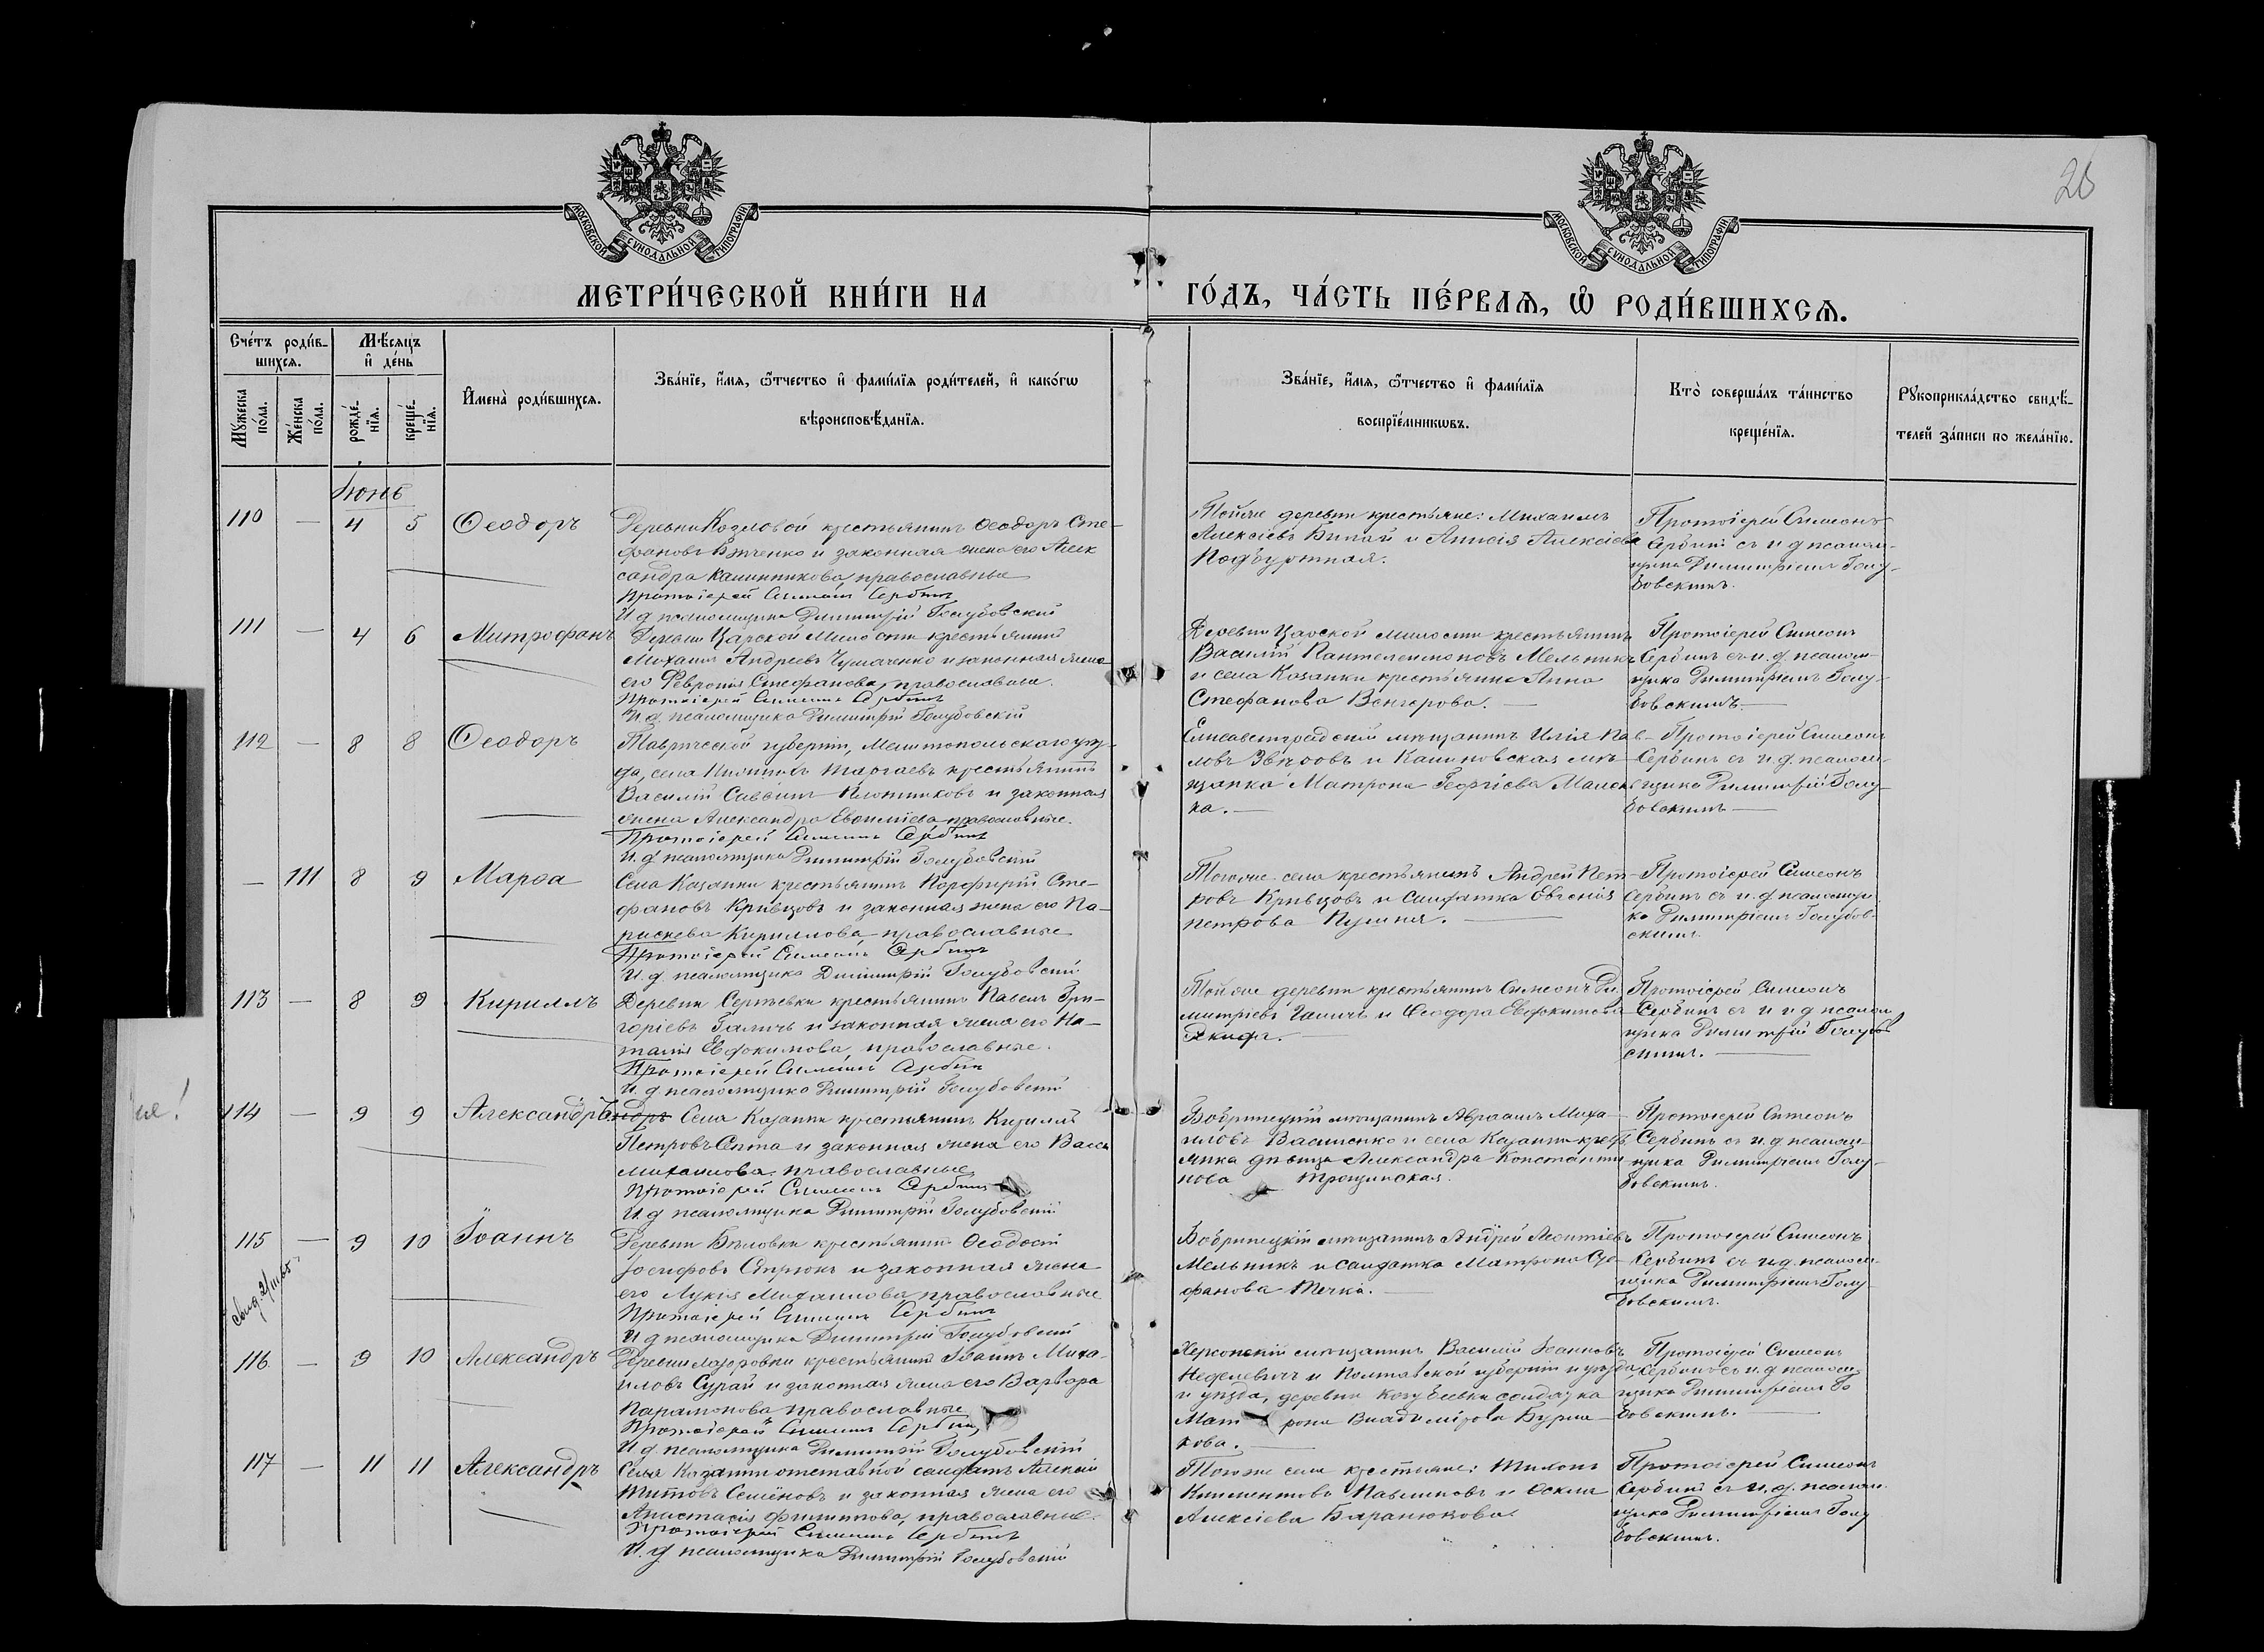 26
МОСКОВСКОЙ СѴНОДАЛЬНОЙ ТИПОГРАФІИ
МОСКОВСКОЙ СѴНОДАЛЬНОЙ ТИПОГРАФІИ
МЕТРИ́ЧЕСКОЙ КНИ́ГИ НА
ГО́ДЪ, ЧА́СТЬ ПЕ́РВАѦ, Ѡ҆ РОДИ́ВШИХСѦ.
Сче́тъ роди́в-
шихсѧ.
Мꙋжеска по́ла.
Же́нска по́ла.
Мѣ́сѧцъ
и҆ де́нь
рожде́-
нїѧ.
креще́-
нїѧ.
И҆мена̀ роди́вшихсѧ.
Зва́нїе, и҆́мѧ, ѻ҆́тчество и҆ фами́лїѧ роди́телей, и҆ како́гѡ
вѣроисповѣ́данїѧ.
Зва́нїе, и҆́мѧ, ѻ҆́тчество и҆ фами́лїѧ
воспрїе́мникѡвъ.
Кто̀ соверша́лъ та́инство
креще́нїѧ.
Рꙋкоприкла́дство свидѣ́-
телей за́писи по жела́нїю.
Іюнь
110 — 4 5 Ѳеодоръ
Деревни Козловой крестьянинъ Ѳеодоръ Сте-
фановъ и законная жена его Алек
сандра Калинникова, православные
Протоіерей Симеонъ Сербинъ
И. д. псаломщика Димитрій Голубовскій
Тойже деревни крестьяне: Михаилъ
Алексіевъ и Алексіева
Протоіерей Симеонъ
Сербинъ съ и. д. псалом-
щика Димитріемъ Голу-
бовскимъ.
111 — 4 6 Митрофанъ
Деревни Царской Милости крестьянинъ
Михаилъ Андреевъ Чумаченко и законная жена
его Февронія Стефанова, православные.
Протоіерей Симеонъ Сербинъ
И. д. псаломщика Димитрій Голубовскій
Деревни Царской милости крестьянинъ
Василій Пантелеимоновъ Мельникъ
и села Казанки крестьянка Анна
Стефанова Венгерова. —
Протоіерей Симеонъ
Сербинъ съ и. д. псалом-
щика Димитріемъ Голу-
бовскимъ. —
112 — 8 8 Ѳеодоръ
Таврической губерніи, Мелитопольскаго уѣз-
да, села крестьянинъ
Василій Саввинъ Плотниковъ и законная
жена Александра Евѳиміева православные.
Протоіерей Симеонъ Сербинъ
И. д. псаломщика Димитрій Голубовскій
Елисаветградскій мѣщанинъ Илія Пав-
ловъ Звѣровъ и мѣ-
щанка Матрона Георгіева
ка. —
Протоіерей Симеонъ
Сербинъ съ и. д. псалом-
щика Димитрій Голу-
бовскимъ —
— 111 8 9 Марѳа
Села Казанки крестьянинъ Порфирій Сте-
фановъ Кривцовъ и законная жена его Па-
раскева Кириллова православные
Протоіерей Симеонъ Сербинъ
И. д. псаломщика Димитрій Голубовскій
Тогоже села крестьянинъ Андрей Пет-
ровъ Кривцовъ и солдатка Евгенія
петрова
Протоіерей Симеонъ
Сербинъ съ и. д. псаломщи
ка Димитріемъ Голубов-
скимъ.
113 — 8 9 Кириллъ
Деревни Сергѣевки крестьянинъ Павелъ Гри-
горіевъ Галичъ и законная жена его На-
талія Евфокимова, православные.
Протоіерей Симеонъ Сербинъ
И. д. псаломщика Димитрій Голубовскій
Тойже деревни крестьянинъ Симеонъ Ди
митріевъ Галичъ и Ѳеодора Евфокимова
Протоіерей Симеонъ
Сербинъ съ и д псалом
щика Димитрій Голубов
скимъ. —
114 — 9 9 Александръ
Села Казанки крестьянинъ Кириллъ
Петровъ и законная жена его Васса
Михаилова, православные,
Протоіерей Симеонъ Сербинъ
И. д. псаломщика Димитрій Голубовскій
Бобринецкій мѣщанинъ Авраамъ Миха-
иловъ Василенко и села Казанки кресть
янка дѣвица Александра Константи
нова Трощинская.
Протоіерей Симеонъ
Сербинъ съ и. д. псалом-
щика Димитріемъ Голу-
бовскимъ.
115 — 9 10 Іоаннъ
Деревни Бѣловки крестьянинъ Ѳеодосій
Іосифовъ и законная жена
его Лукія Михаилова, православные
Протоіерей Симеонъ Сербинъ
И. д. псаломщика Димитрій Голубовскій
Бобринецкій мѣщанинъ Андрей Леонтіевъ
Мельникъ и солдатка Матрона Сте-
фанова —
Протоіерей Симеонъ
Сербинъ съ и. д. псалом-
щика Димитріемъ Голу-
бовскимъ.
116 — 9 10 Александръ
Деревни крестьянинъ Іоаннъ Миха-
иловъ Сурай и законная жена его Варвара
Парамонова православные
Протоіерей Симеонъ Сербинъ
И. д. псаломщика Димитрій Голубовскій
Херсонскій мѣщанинъ Василій Іоанновъ
и Полтавской губерніи и уѣзда,
и уѣзда, деревни солдатка
Мат рона Владимірова
кова. —
Протоіерей Симеонъ
Сербинъ съ и. д. псалом-
щика Димитріемъ Го
бовскимъ. —
117 — 11 11 Александръ
Села Казанки отставной солдатъ Алексій
Титовъ Семёновъ и законная жена его
Анастасія Филиппова, православные.
Протоіерей Симеонъ Сербинъ
И. д. псаломщика Димитрій Голубовскій
Тогоже села крестьяне: Тихонъ
Климентовъ Павликовъ и Ѳекла
Алексіева Баранюкова
Протоіерей Симеонъ
Сербинъ съ и. д. псалом
щика Димитріемъ Голу
бовскимъ.